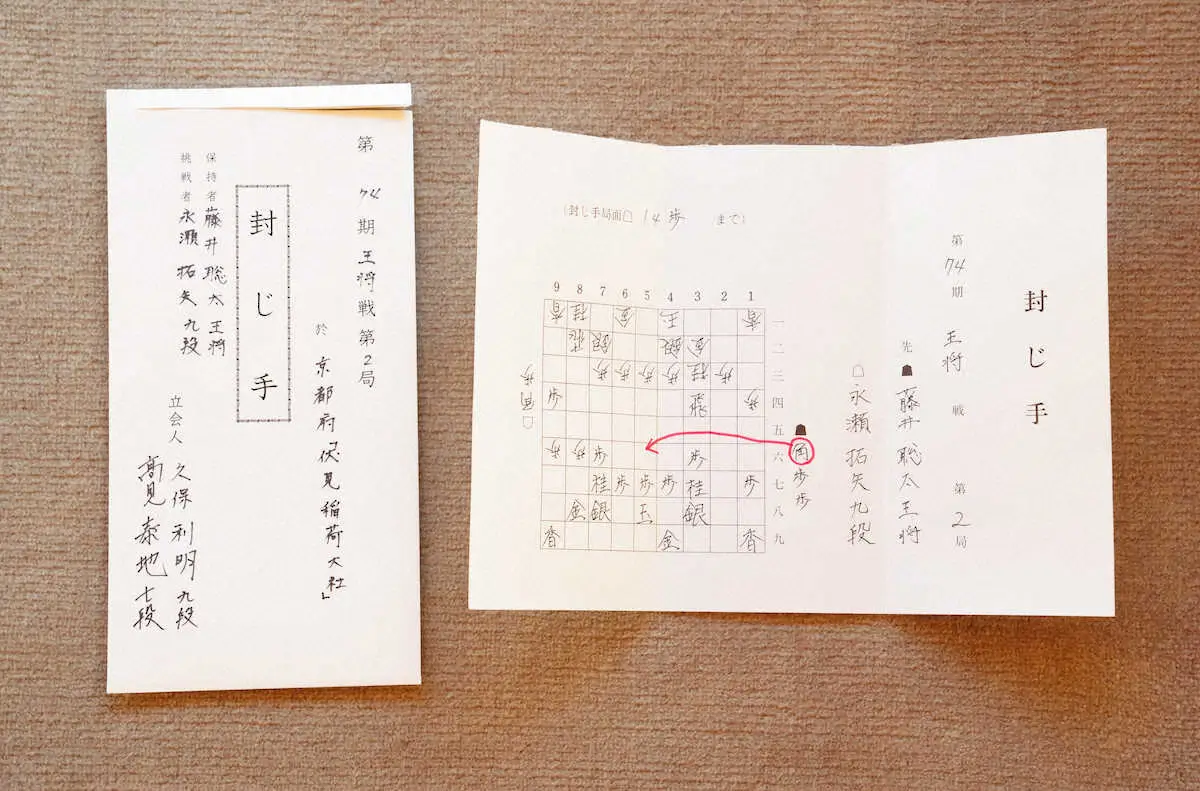 第74期王将戦第2局
於 京都府「伏見稲荷大社」
封じ手
保持者 藤井聡太 王将
挑戦者 永瀬 拓矢 九段
立会人 久保利明 九段
髙見泰地 七段
封じ手
第74期 王将 戦 第2局
先 ☗ 藤井聡太王将
☖ 永瀬拓矢九段
(封じ手局面☖ 14歩 まで)
9 8 7 6 5 4 3 2 1
香 桂 金 玉 香 一
飛 銀 銀 金 二
歩 歩 歩 歩 桂 歩 三
歩 飛 歩 四
五
歩 歩 歩 歩 六
桂 歩 歩 歩 桂 歩 七
金 銀 玉 銀 八
香 金 香 九
☗角歩歩
☖角歩